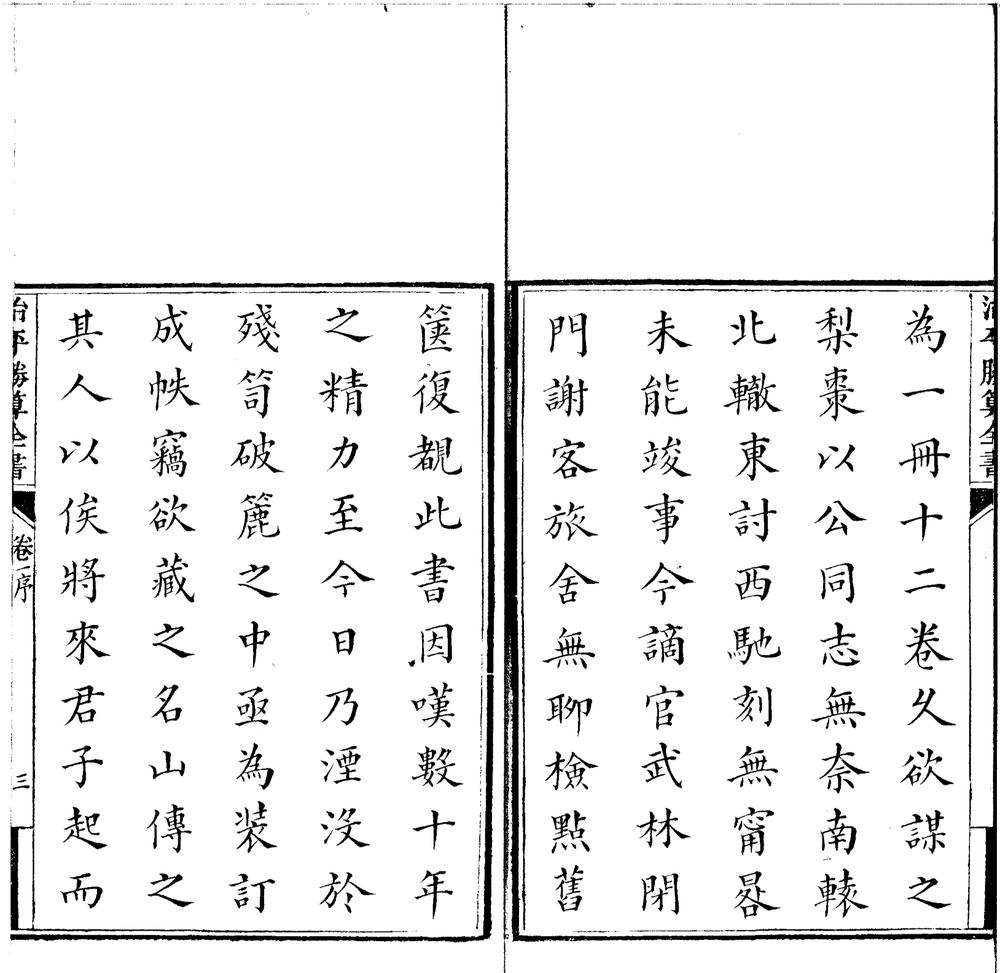 治平勝算全書
為一冊十二卷久欲謀之
梨棗以公同志無奈南轅
北轍東討西馳刻無甯晷
未能竣事今謫官武林閉
門謝客旅舍無聊檢點舊
篋復覩此書因嘆數十年
之精力至今日乃湮沒於
殘笥破簏之中亟為装訂
成帙竊欲藏之名山傳之
其人以俟將來君子起而
治平勝算全書
卷一序
三